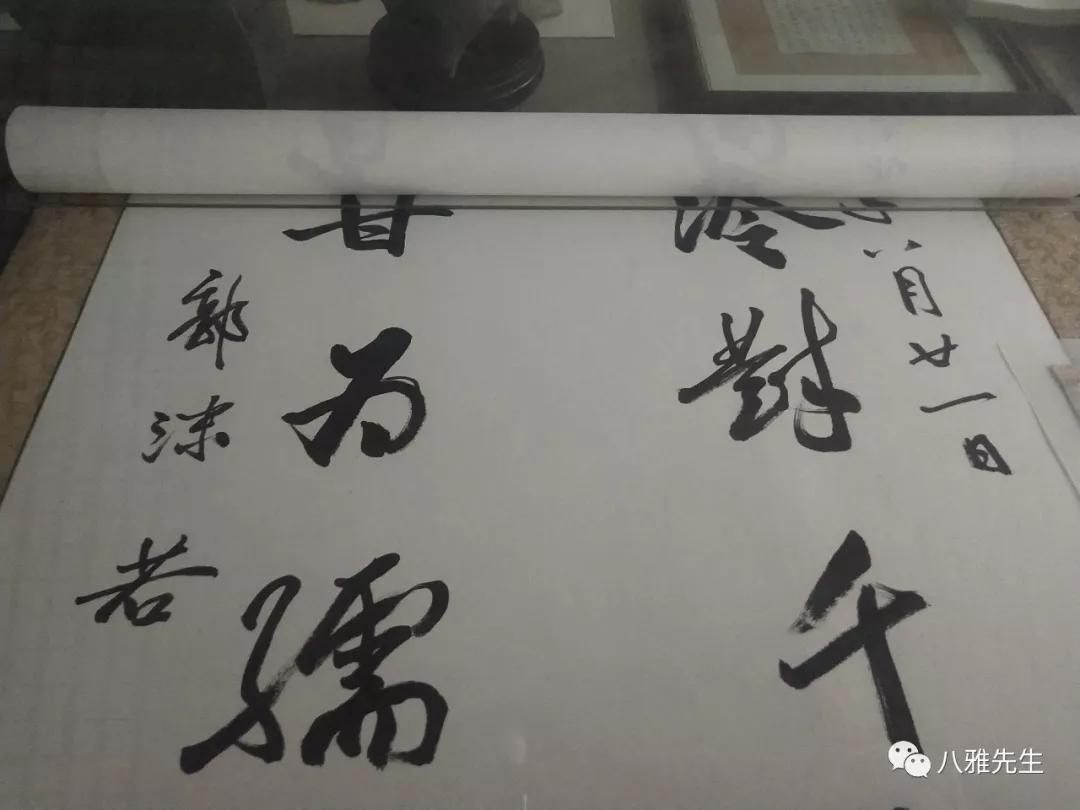 八月廿一日
冷對千
甘为孺
郭沫若
八雅先生